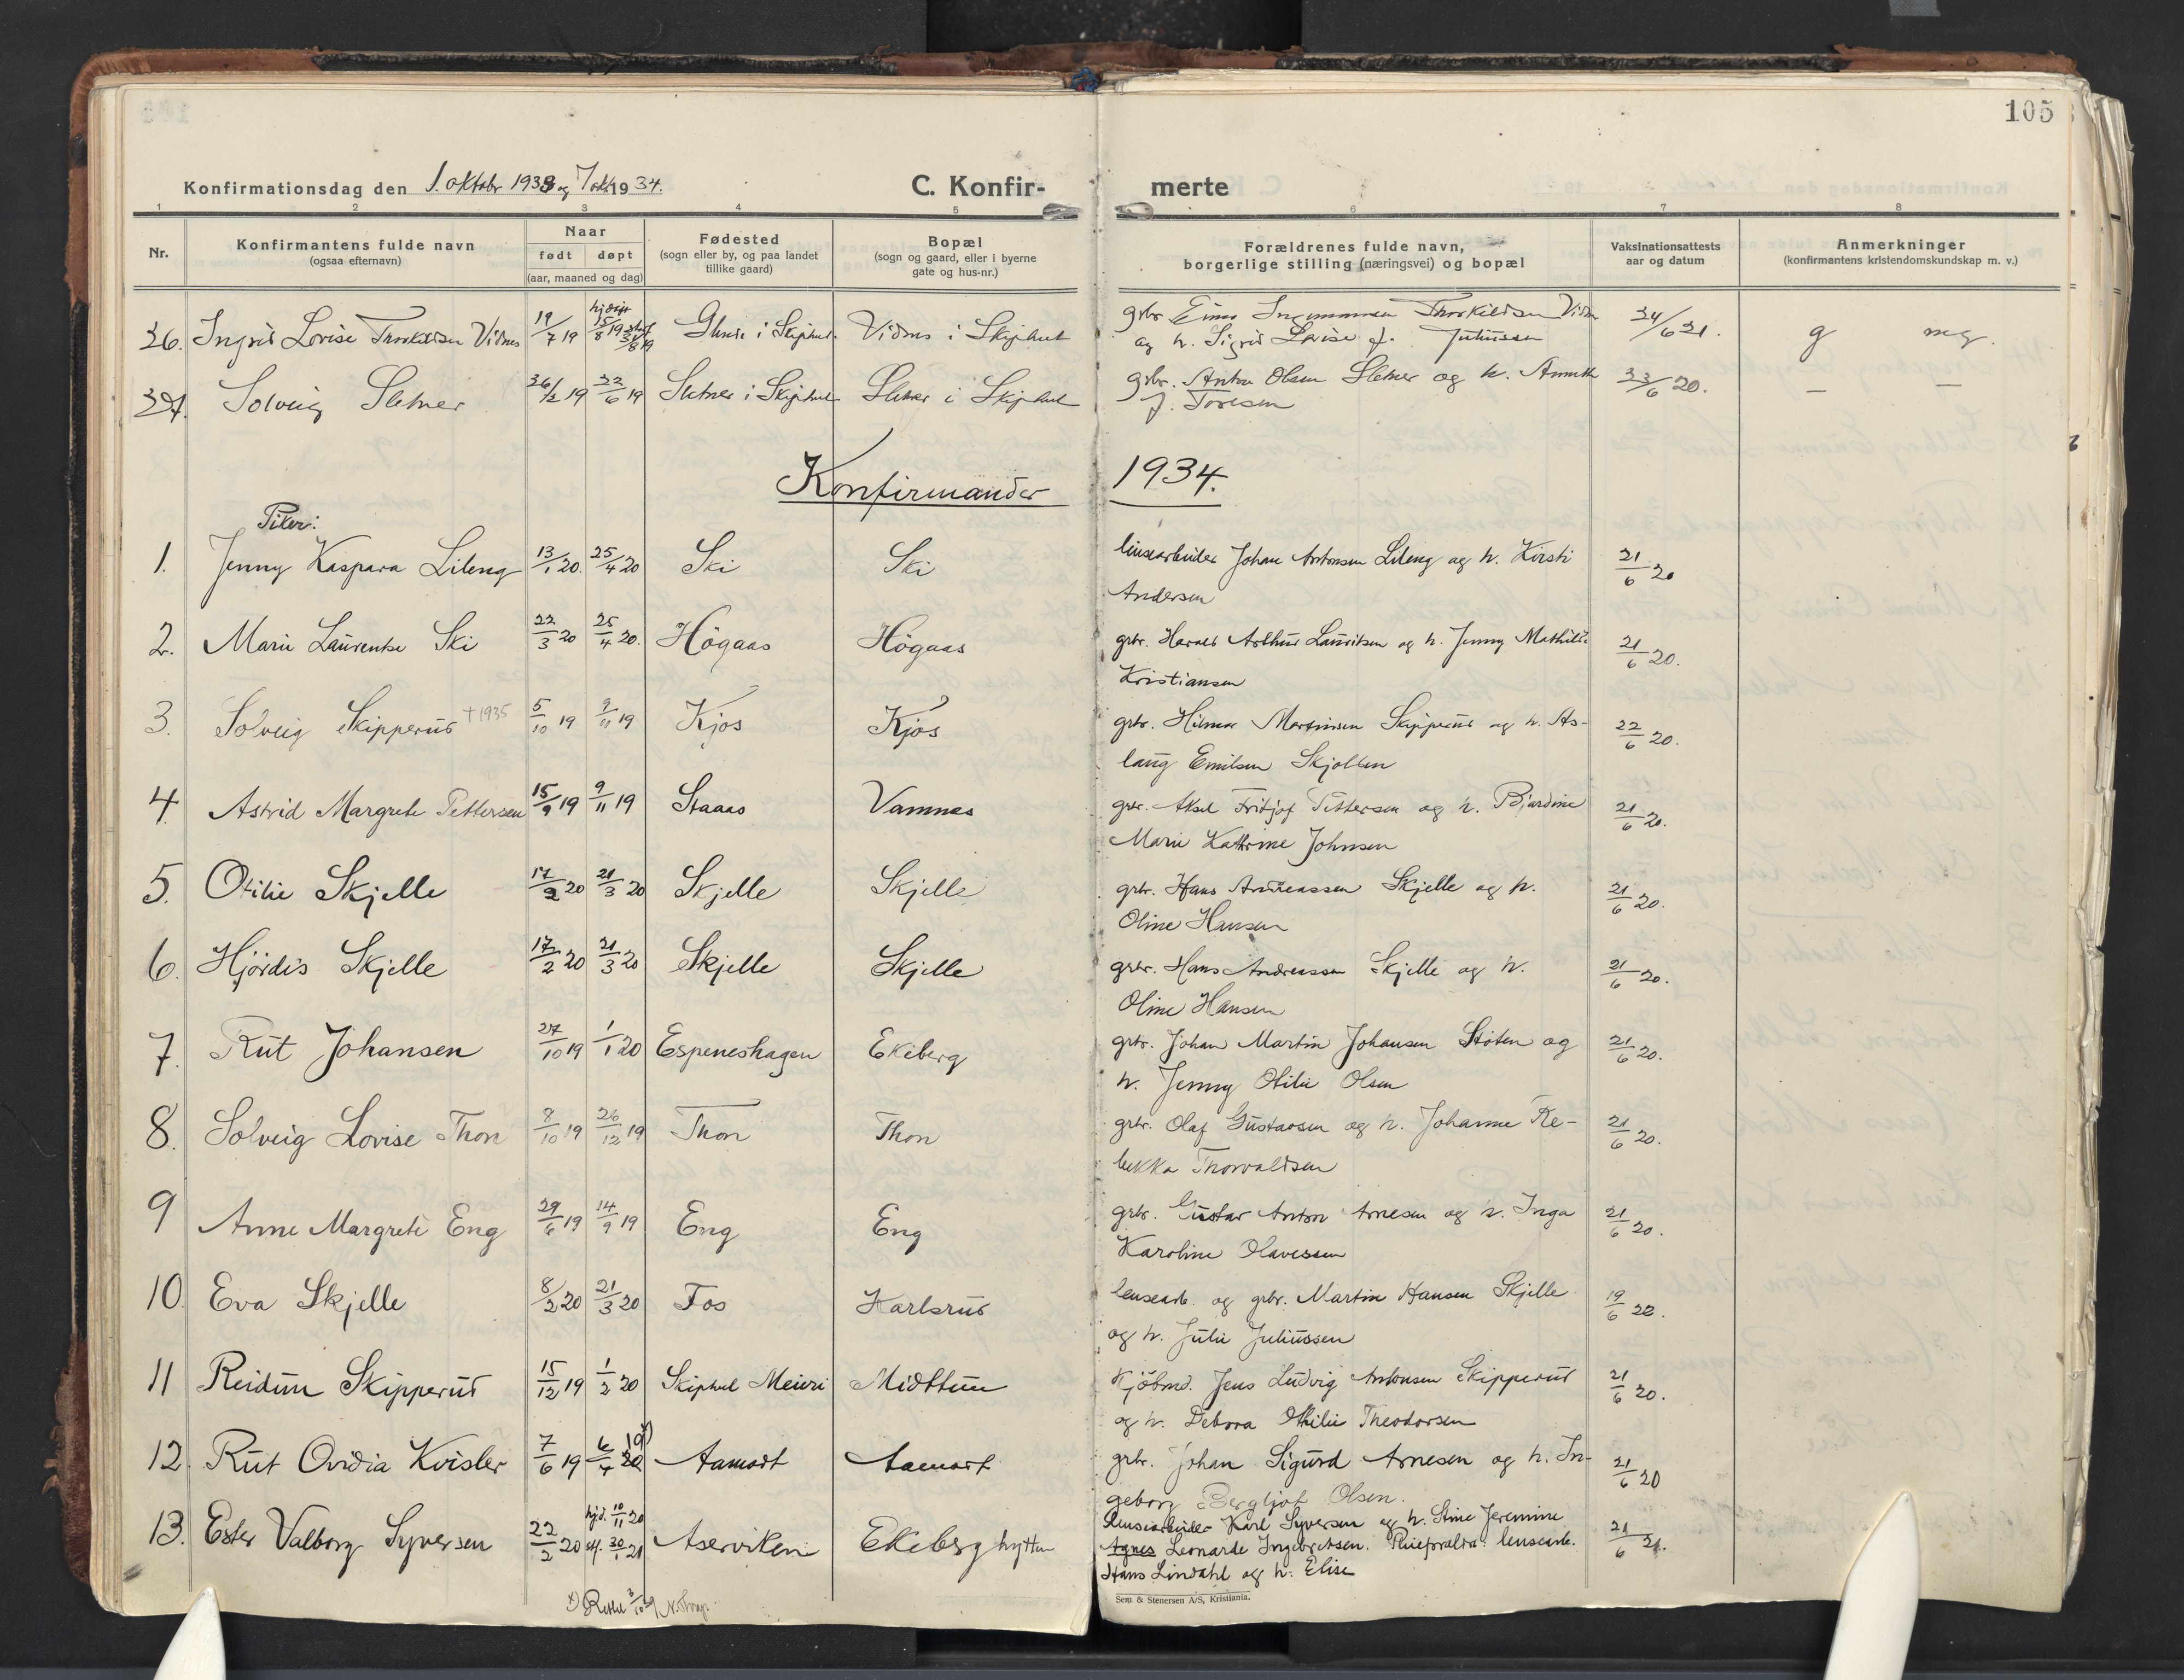 105
Konfirmationsdag den 1. oktobr 1933 og 7 okt. 1934.
C. Konfir- merte
1 2 3 4 5 6 7 8
Nr.
Konfirmantens fulde navn
(ogsaa efternavn)
Naar
født døpt
(aar, maaned og dag)
Fødested
(sogn eller by, og paa landet
tillike gaard)
Bopæl
(sogn og gaard, eller i byerne
gate og hus-nr.)
Forældrenes fulde navn,
borgerlige stilling (næringsvei) og bopæl
Vaksinationsattests
aar og datum
Anmerkninger
(konfirmantens kristendomskundskap m. v.)
26. Ingrid Lovise Thorkildsen Vidnes 19/7 19 hjdøpt 15/8 19 31/8 19 i Skiphvet Vidnes i Skiphvet grbr. Einar Ingemansen Thorkildsen Vidnes 24/6 21. g meg.
og h. Sigrid Lovise f. Juliussen
27. Solveig Sletner 26/2 19 22/6 19 Sletner i Skiphvet Sletner i Skiphvet grbr. Anton Olsen Sletner og h. Annette 23/6 20. —  —
f. Toresen
Konfirmander 1934.
Piker:
1. Jenny Kaspara Lileng 13/1 20. 25/4 20 Ski Ski lensearbeider Johan Antonsen Lileng og h. Kirsti 21/6 20
Andersen
2. Marie Laurentse Ski 22/3 20 25/4 20. Högaas Högaas grbr. Harald Arthur Lauritsen og h. Jenny Mathilde 21/6 20.
Kristiansen
3. Solveig Skipperud † 1935 5/10 19 9/11 19 Kjos Kjos grbr. Hilmar Martinsen Skipperud og h. As- 22/6 20.
laug Emilsen Skjolden
4. Astrid Margrete Pettersen 15/9 19 9/11 19 Staaas Vamnes grbr. Aksel Fritjof Pettersen og h. Bjardine 21/6 20.
Marie Kathrine Johnsen
5. Otilie Skjelle 17/2 20 21/3 20 Skjelle Skjelle grbr. Hans Andreassen Skjelle og h. 21/6 20.
Oline Hansen
6. Hjördis Skjelle 17/2 20 21/3 20 Skjelle Skjelle grbr. Hans Andreassen Skjelle og h. 21/6 20.
Oline Hansen
7. Rut Johansen 27/10 19 1/1 20 Espeneshagen Ekeberg grbr. Johan Martin Johansen Stöten og 21/6 20.
h. Jenny Otilie Olsen
8. Solveig Lovise Thon 8/10 19 26/12 19 Thon Thon grbr. Olaf Gustavsen og h. Johanne Re- 21/6 20.
bekka Thorvaldsen
9 Anne Margrete Eng 29/6 19 14/9 19 Eng Eng grbr. Gustav Anton Arnesen og h. Inga 21/6 20.
Karoline Olavessen
10. Eva Skjelle 8/2 20 21/3 20 Fos Karlsrud lensearb. og grbr. Martin Hansen Skjelle 19/6 22.
og h. Julie Juliussen
11 Reidun Skipperud 15/12 19 1/2 20 Skiphvel Meieri Midttun Kjöbmd. Jens Ludvig Antonsen Skipperud 21/6 20.
og h. Debora Othilie Theodorsen
12. Rut Ovidia Kvisler 7/6 19 6/4 20 19 1) Aamodt Aamodt grbr. Johan Sigurd Arnesen og h. In- 21/6 20
geborg Bergljot Olsen.
13. Ester Valborg Syversen 22/2 20 hjd. 10/11 20 st. 30/1 21 Aserviken Ekeberghytten Lensearbeider Karl Syversen og h. Stine Jeremine 21/6 21.
Agnes Leonarde Ingebretsen. Pleieforældre: lensearb.
Hans Lindahl og h. Elise
1) Rettet 3/10 29 N. Thrap.
Sem & Stenersen A/S, Kristiania.